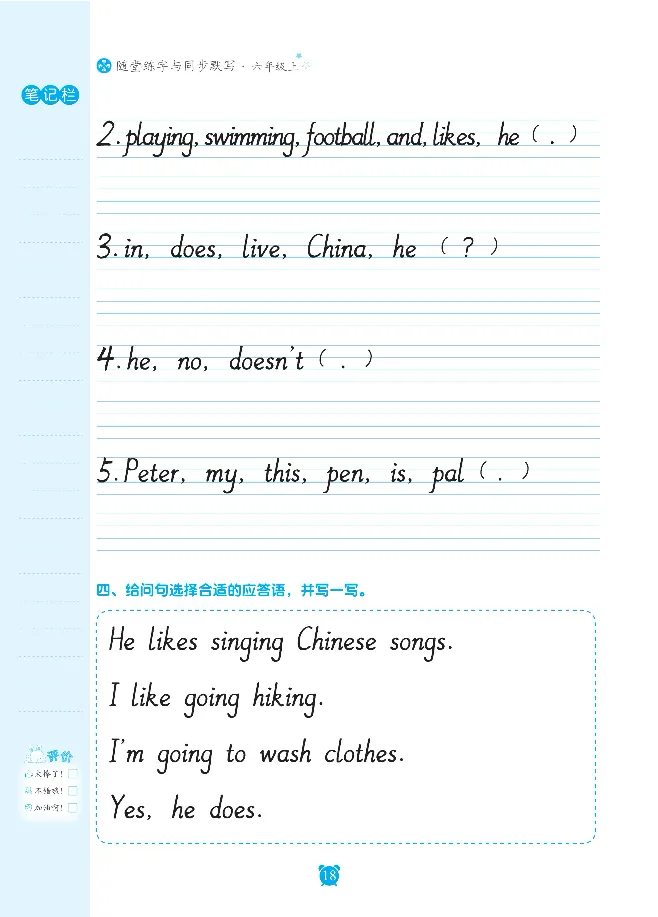 随堂练字与同步默写·六年级上
笔记栏
2. playing, swimming, football, and, likes, he ( . )
3. in, does, live, China, he ( ? )
4. he, no, doesn't ( . )
5. Peter, my, this, pen, is, pal ( . )
四、给问句选择合适的应答语，并写一写。
He likes singing Chinese songs.
I like going hiking.
I'm going to wash clothes.
Yes, he does.
评价
太棒了！
不错哦！
加油啊！
18